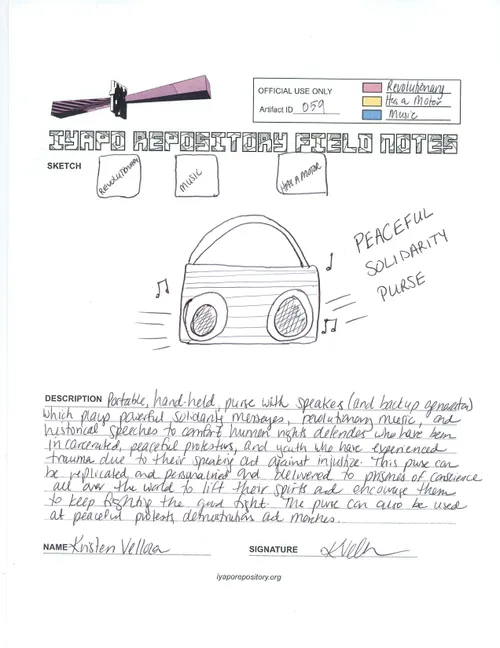 OFFICIAL USE ONLY
Artifact ID 059
Revolutionary
Has a Motor
Music
IYAPO REPOSITORY FIELD NOTES
SKETCH
REVOLUTIONARY
MUSIC
HAS A MOTOR
PEACEFUL
SOLIDARITY
PURSE
DESCRIPTION Portable, hand-held purse with speakers (and backup generator)
which plays powerful solidarity messages, revolutionary music, and
historical speeches to comfort human rights defenders who have been
incarcerated, peaceful protestors, and youth who have experienced
trauma due to their speaking out against injustice. This purse can
be replicated and personalized and delivered to prisoners of conscience
all over the world to lift their spirits and encourage them
to keep fighting the good fight. The purse can also be used
at peaceful protests, demonstrations and marches.
NAME Kristen Vellora
SIGNATURE
iyaporepository.org